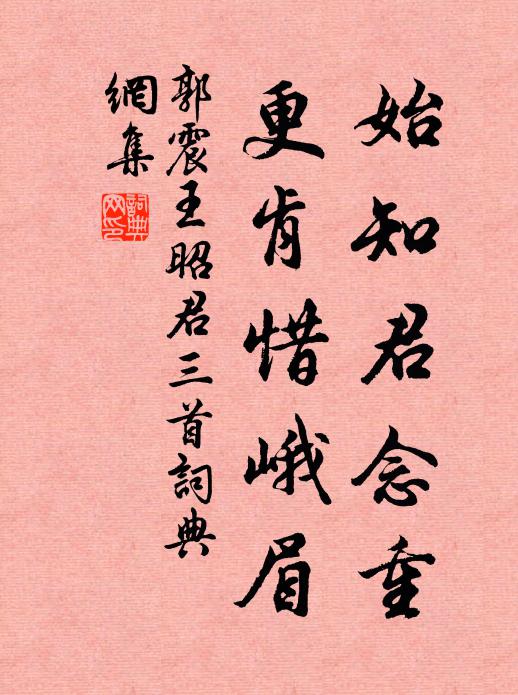 始知君念重
更肯惜峨眉
郭震王昭君三首詞典
網集
詞典
网印